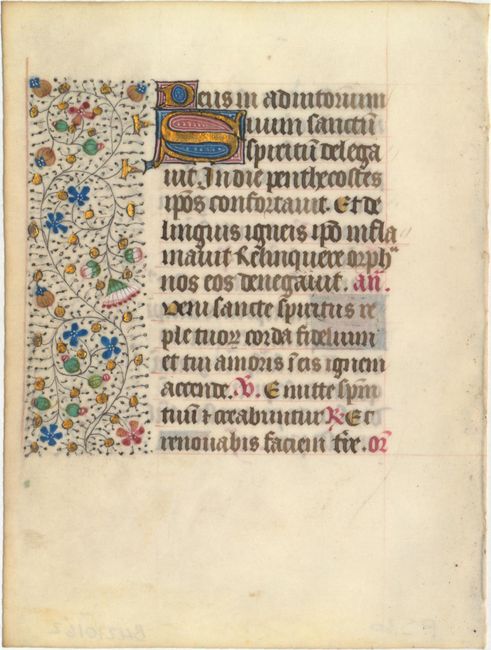 Deus in adiutorium
Suum sanctū
spiritū delega
uit. In die penthecostes
ip̄os confortauit. Et de
linguis igneis ip̄o infla
mauit Relinquere orpha
nos eos denegauit. añ.
Veni sancte spiritus re
ple tuoꝝ corda fidelium
et tui amoris ī eis ignem
accende. V̄. Emitte sp̄m
tuum ⁊ creabuntur R̄ Et
renouabis faciem tr̄e. or̄